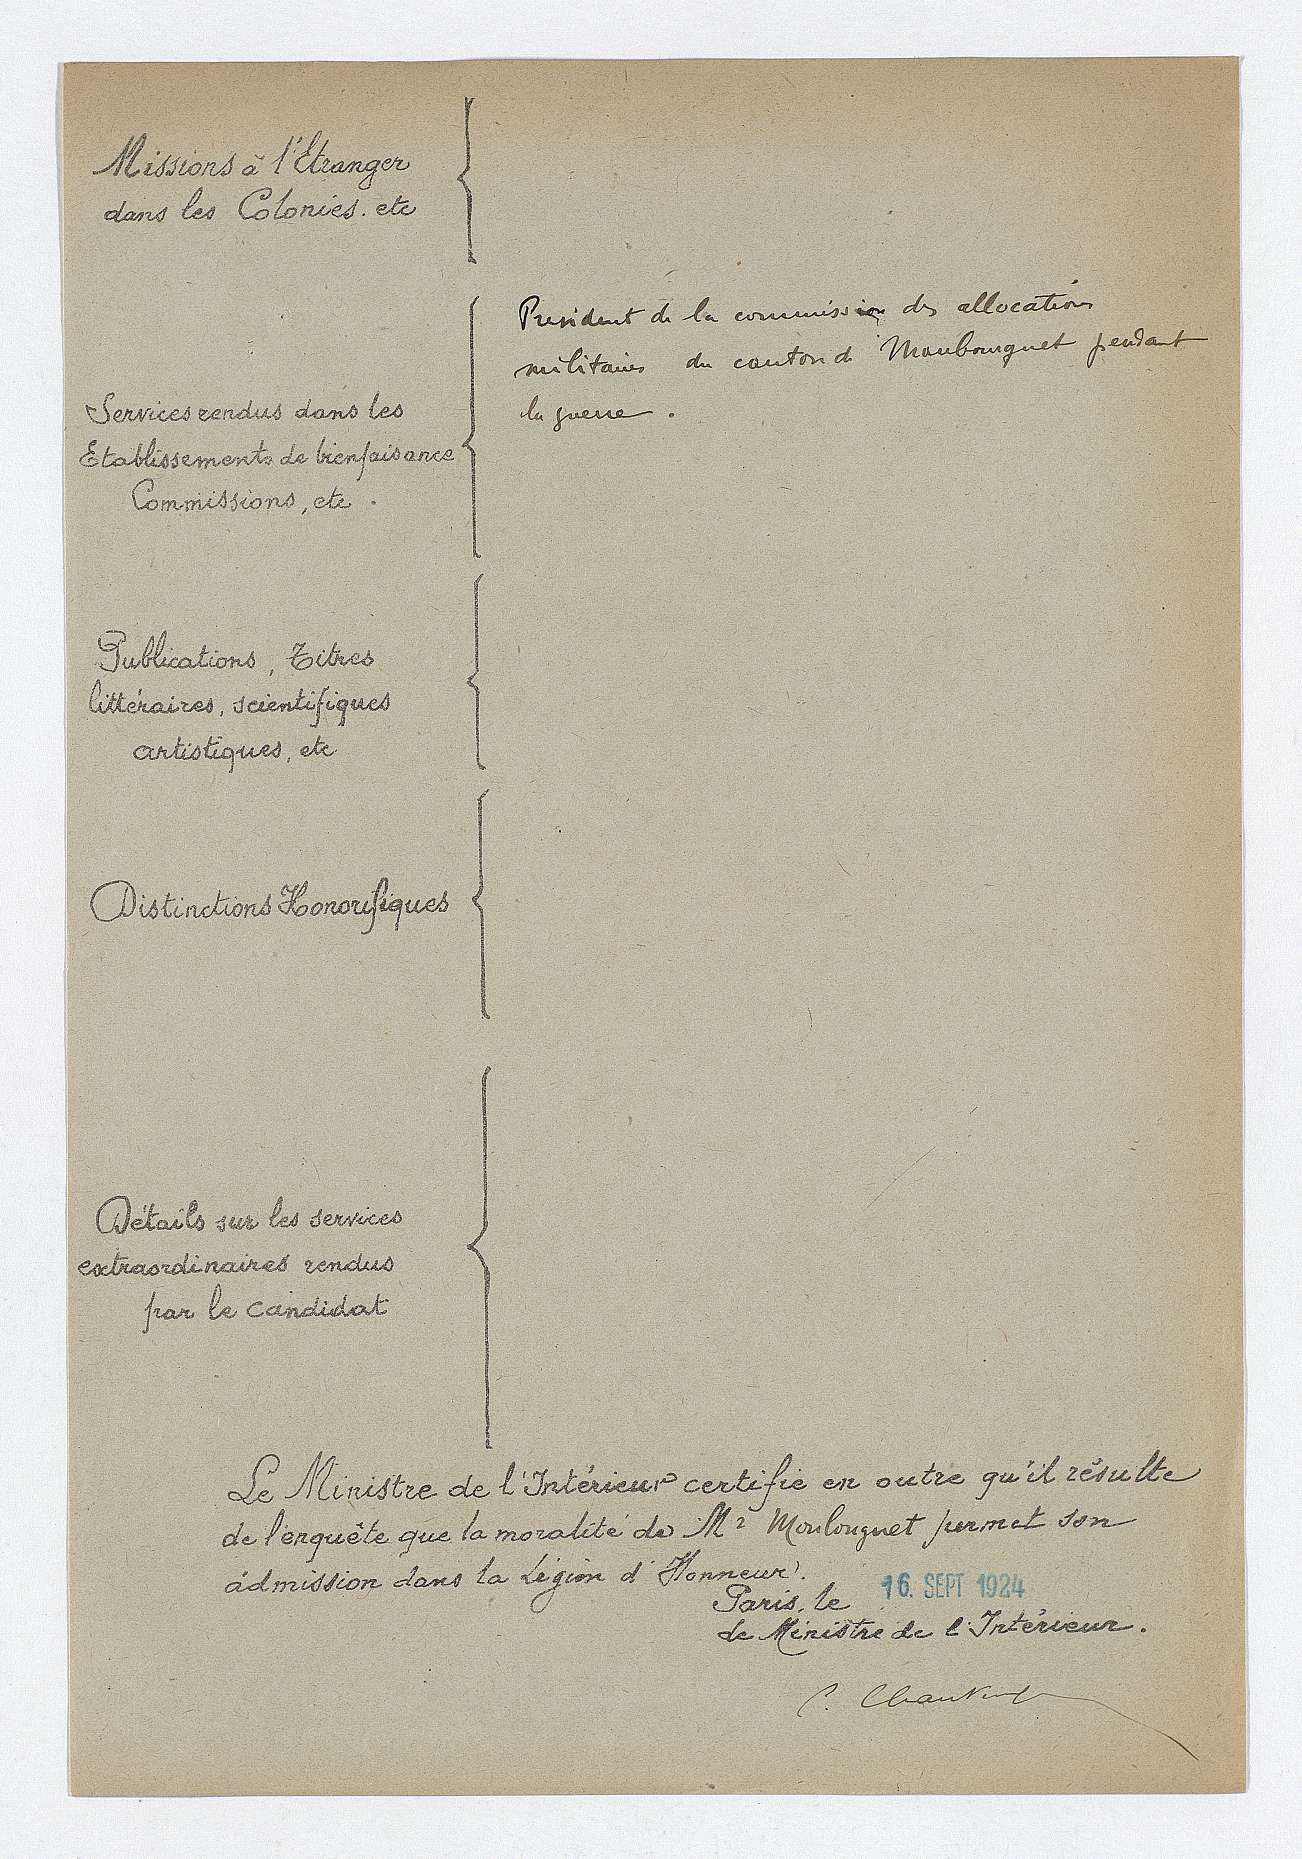 Missions à l'Etranger
dans les Colonies. etc
President de la commission des allocations
militaires du canton de Maubourguet pendant
la guerre.
Services rendus dans les
Etablissements de bienfaisance
Commissions, etc.
Publications, Titres
littéraires, scientifiques
artistiques, etc
Distinctions Honorifiques
Détails sur les services
extraordinaires rendus
par le candidat
Le Ministre de l'Intérieur certifie en outre qu'il résulte
de l'enquête que la moralité de Mr Moulonguet permet son
admission dans la Légion d'Honneur.
Paris, le 16. SEPT 1924
Le Ministre de l'Intérieur.
C. Chautemps